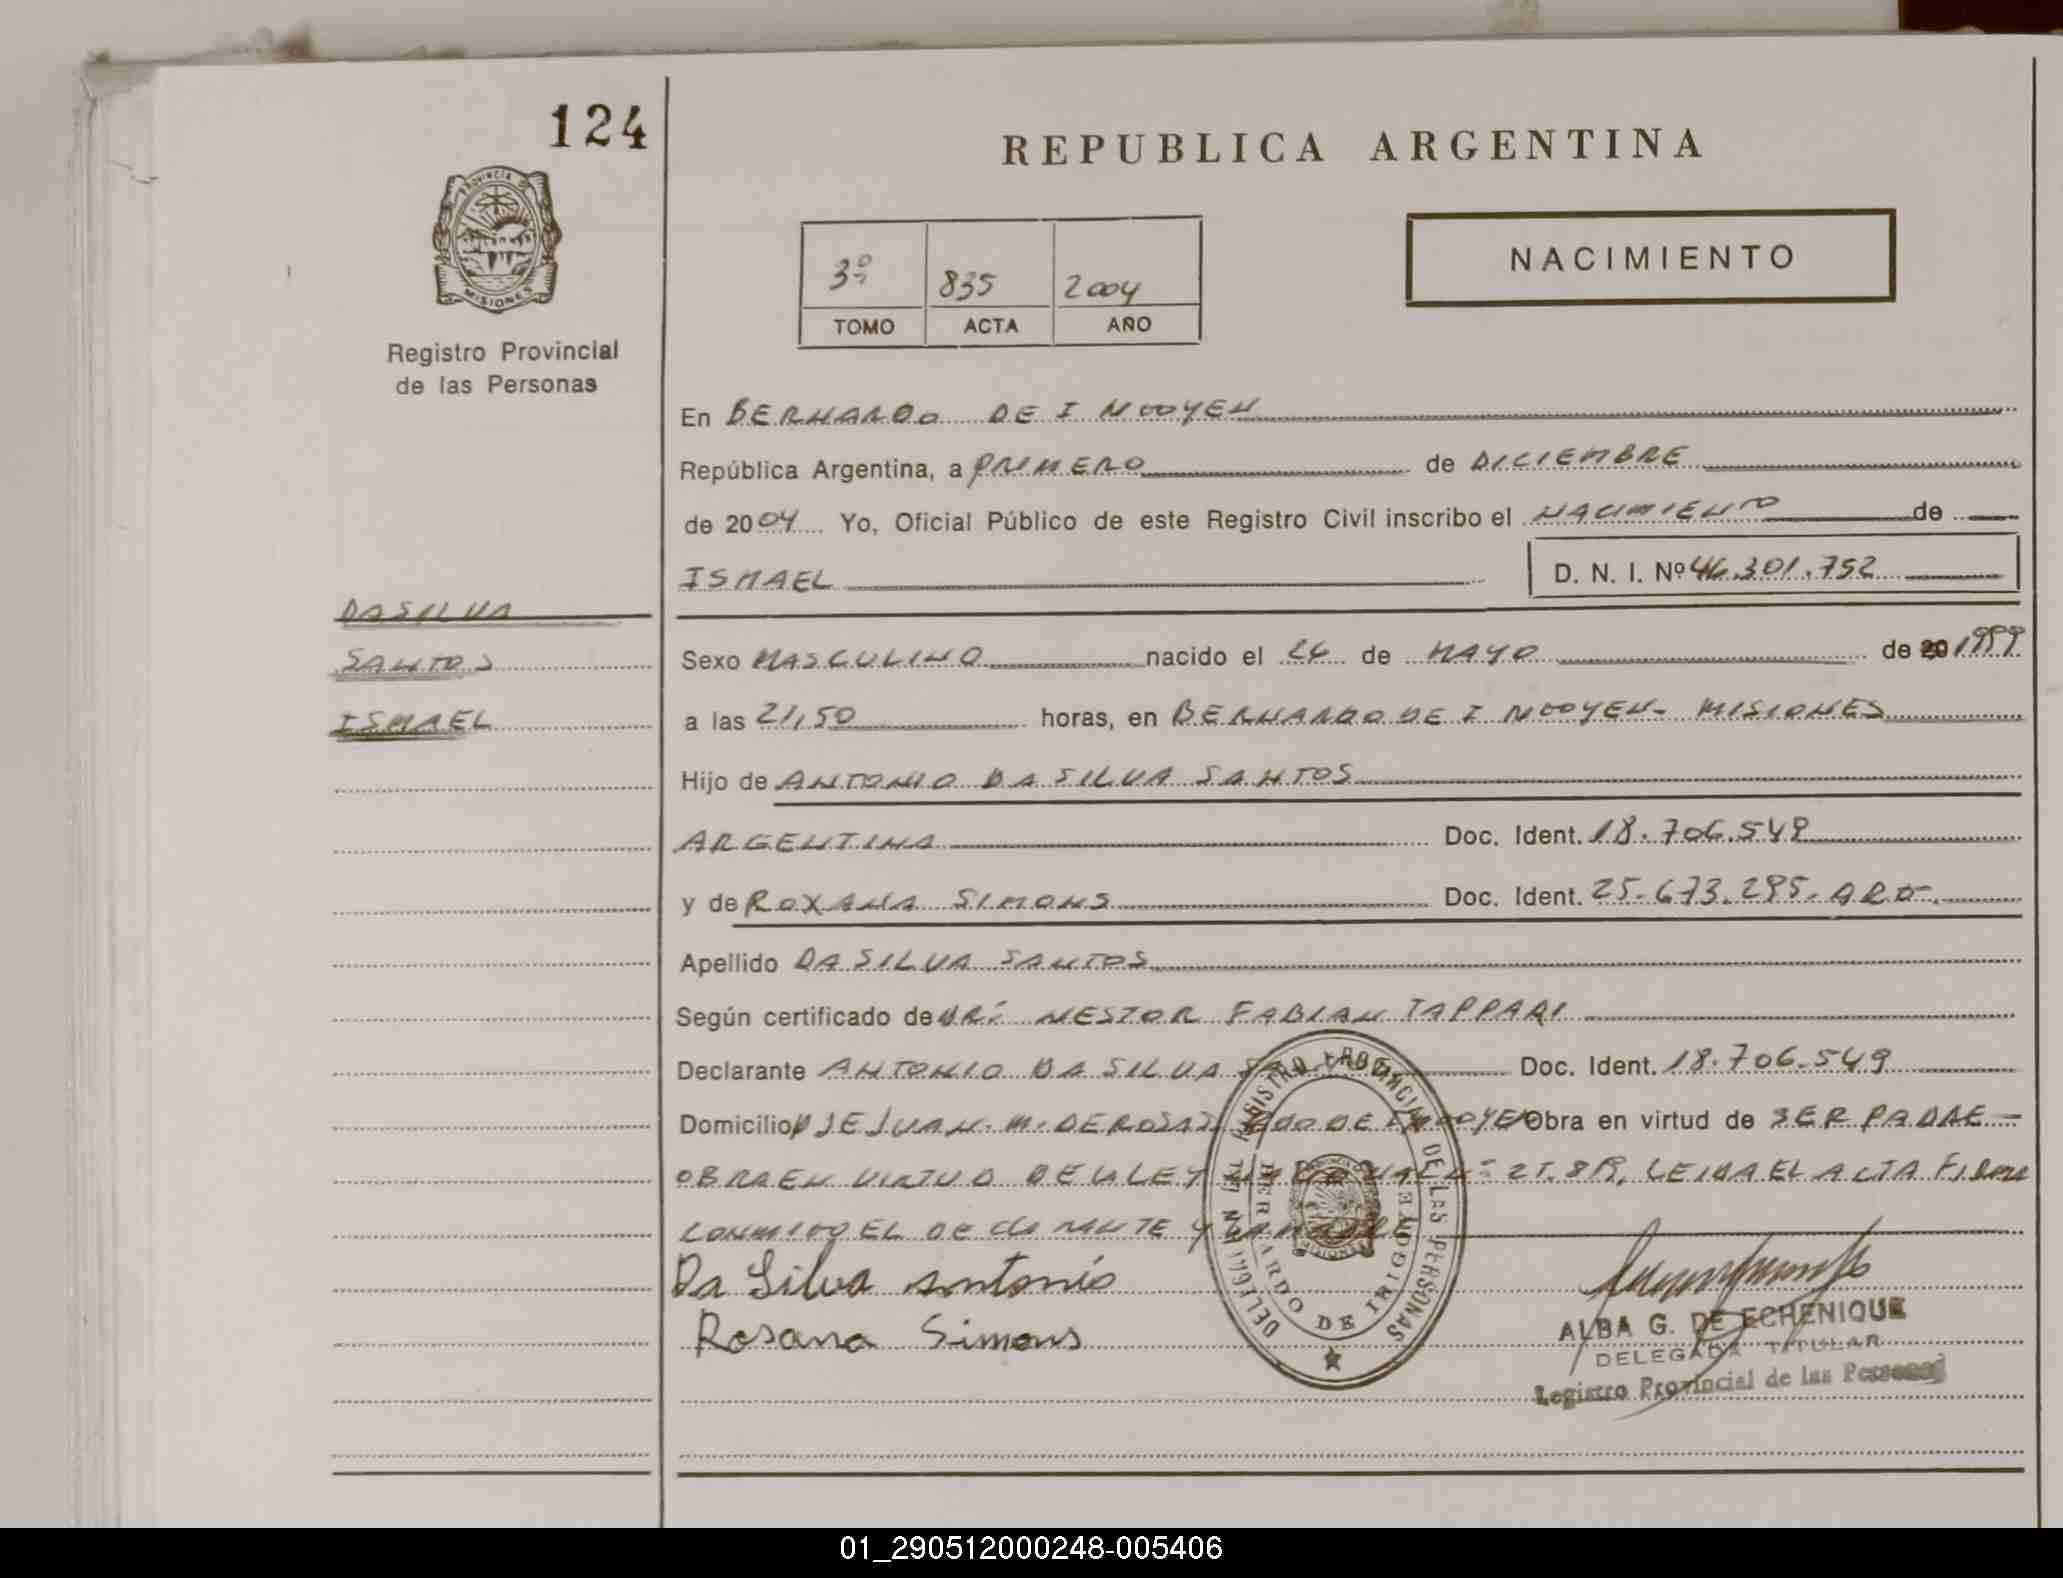 124
REPUBLICA ARGENTINA
PROVINCIA DE
MISIONES
Registro Provincial
de las Personas
3º 835 2004
TOMO ACTA AÑO
NACIMIENTO
En BERNARDO DE IRIGOYEN
República Argentina, a PRIMERO de DICIEMBRE
de 2004 Yo, Oficial Público de este Registro Civil inscribo el NACIMIENTO de
ISMAEL D. N. I. Nº 46.301.752
DA SILVA
SANTOS
ISMAEL
Sexo MASCULINO nacido el 26 de MAYO de 20 1999
a las 21,50 horas, en BERNARDO DE IRIGOYEN - MISIONES
Hijo de ANTONIO DA SILVA SANTOS
ARGENTINA Doc. Ident. 18.706.549
y de ROXANA SIMONS Doc. Ident. 25.673.295. ARG.
Apellido DA SILVA SANTOS
Según certificado de DR: NESTOR FABIAN TAPPARI
Declarante ANTONIO DA SILVA Doc. Ident. 18.706.549
Domicilio JUAN. M. DE ROSAS Obra en virtud de SER PADRE
OBRA EN VIRTUD DE LA LEY 25.819, LEIDA EL ACTA FIRMA
CONMIGO EL DECLARANTE Y LA MADRE
Da Silva Antonio
Rosana Simons
REGISTRO PROVINCIAL DE LAS PERSONAS
BERNARDO DE IRIGOYEN
ALBA G. DE ECHENIQUE
DELEGADA TITULAR
Registro Provincial de las Personas
01_290512000248-005406